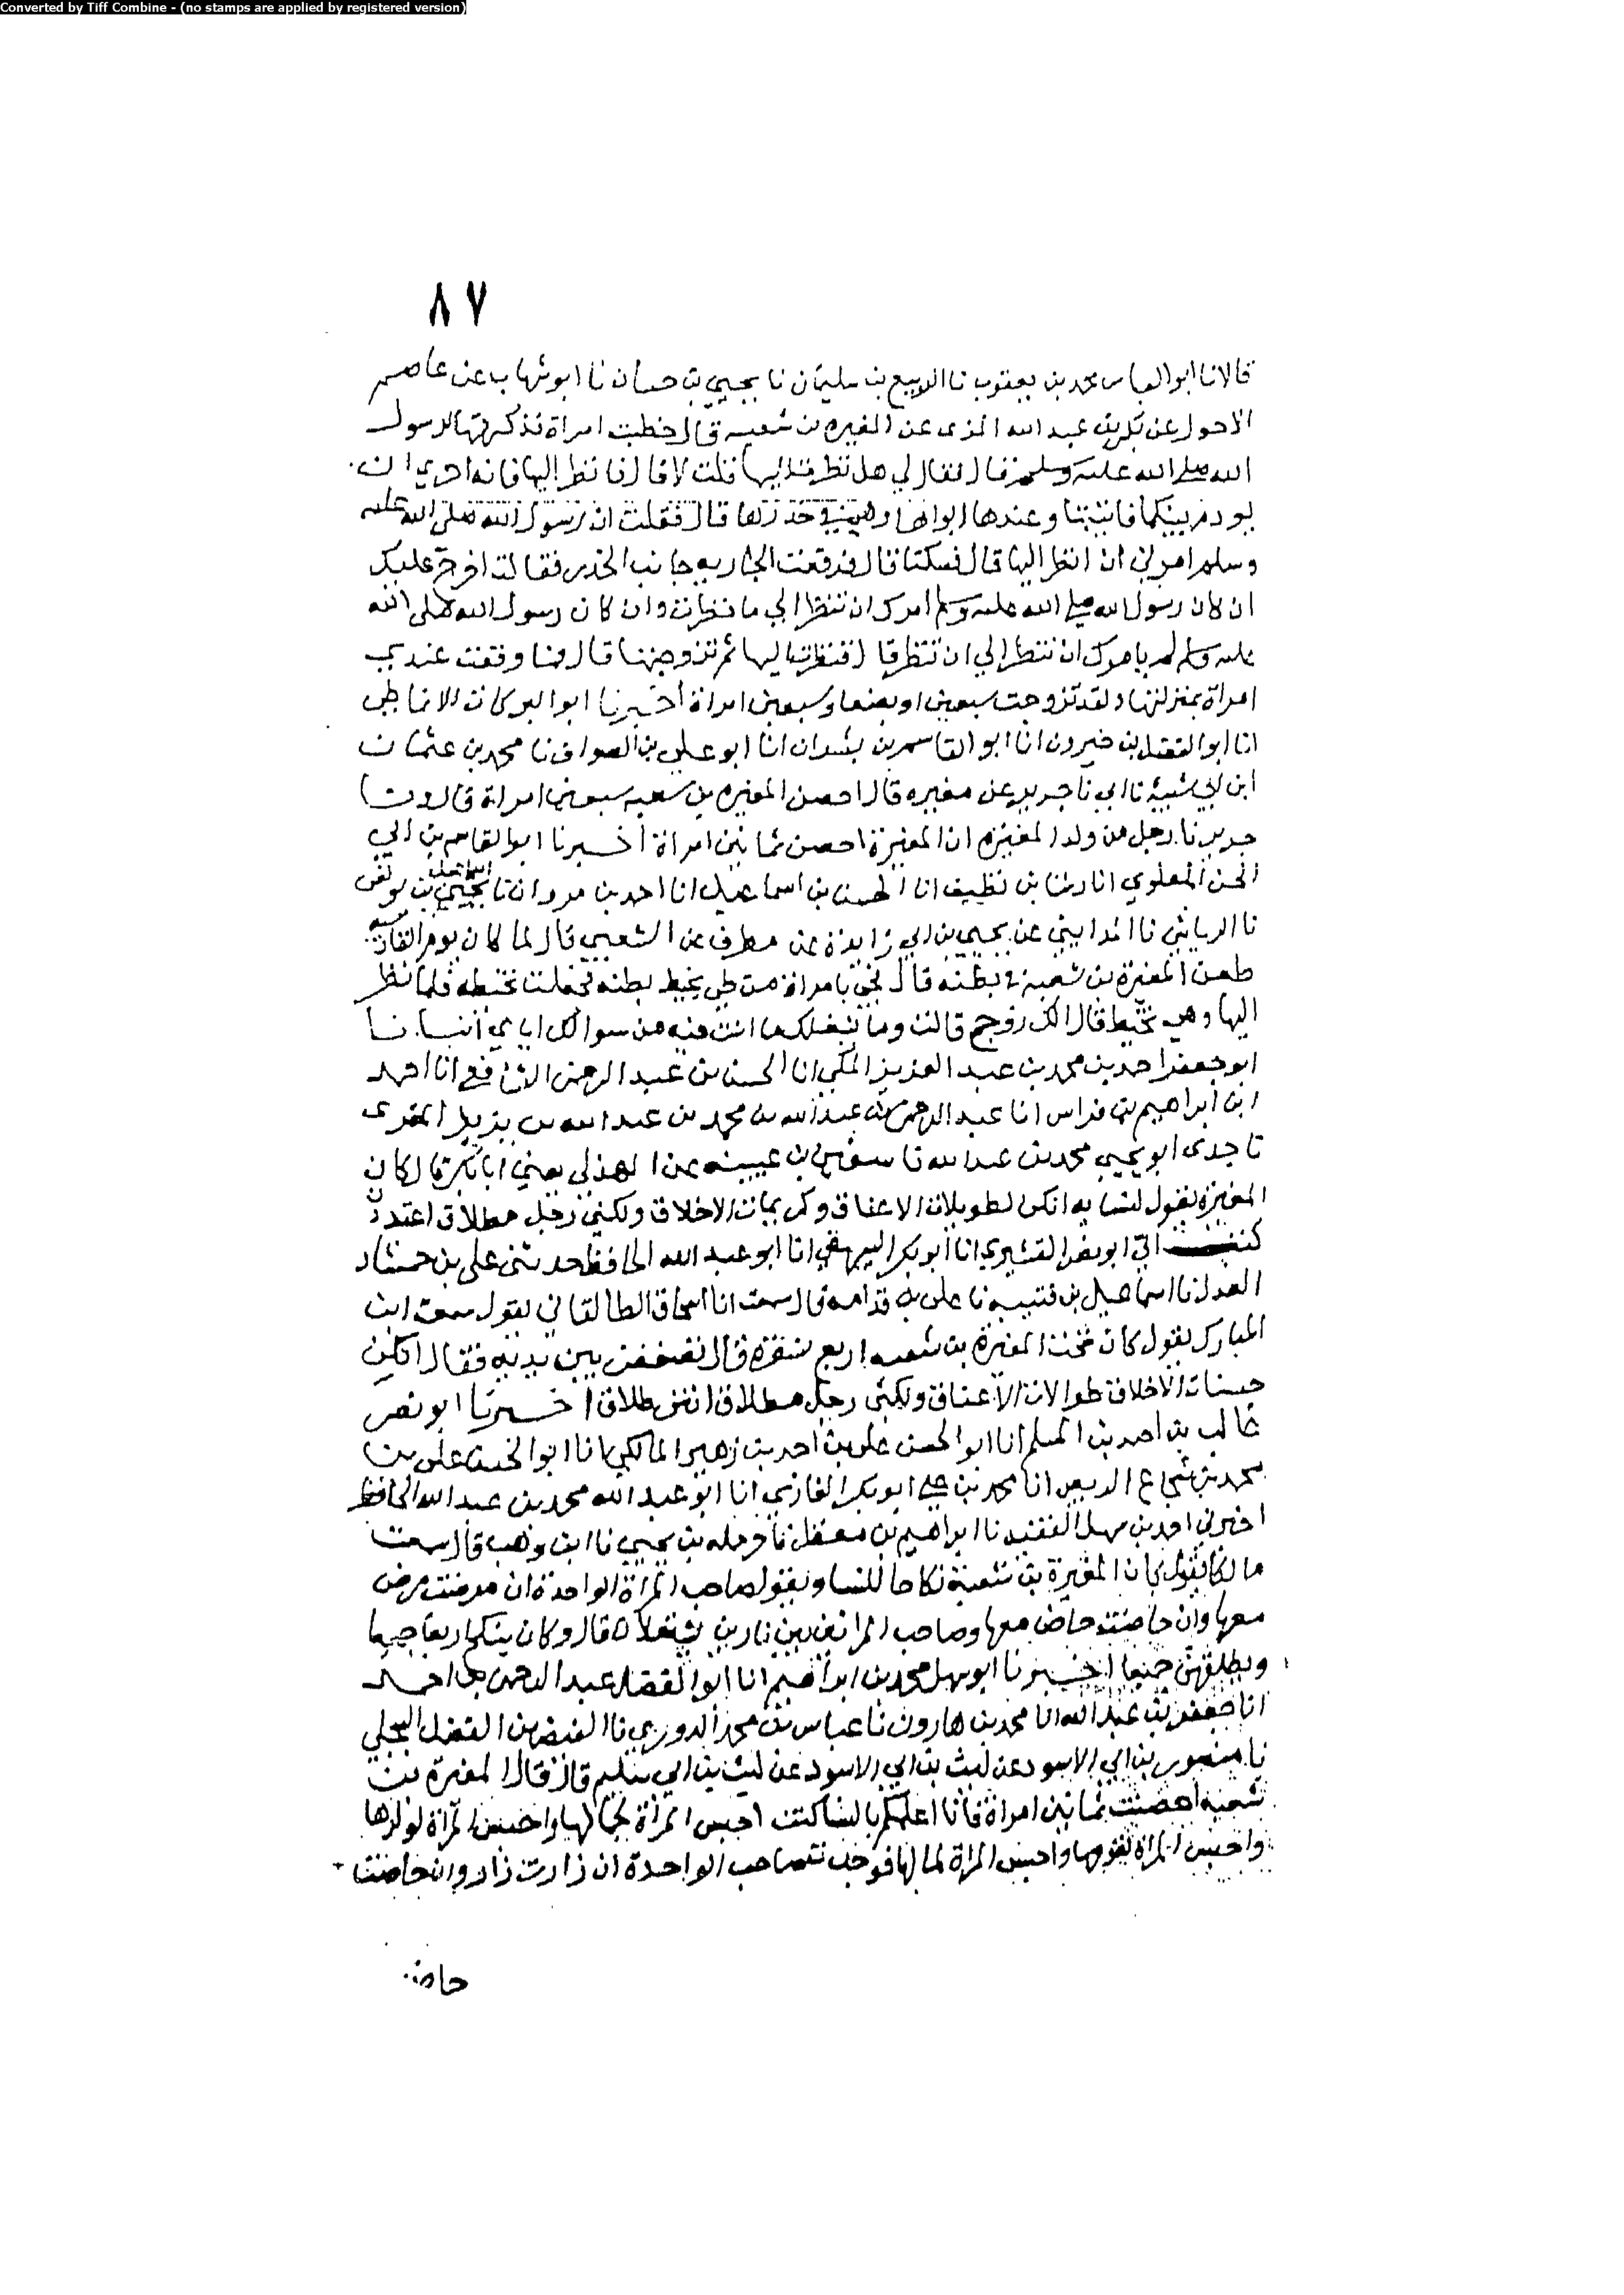 Converted by Tiff Combine - (no stamps are applied by registered version)
٨٧
قالا نا ابو العباس محمد بن يعقوب نا الربيع بن سليمان نا يحيى بن حسان نا ابو شهاب عن عاصم
الاحول عن بكر بن عبد الله المزى عن المغيره بن شعبه قال خطبت امراة فذكرتها لرسول
الله صلى الله عليه وسلم قال فقال لي هل نظرت اليها قلت لا قال فانظر اليها فانه احرى ان
يودم بينكما فاتيتها وعندها ابواها وهي في خدرها قال فقلت ان رسول الله صلى الله عليه
وسلم امرني ان انظر اليها قال فسكتا قال فرفعت الجاريه جانب الخدر فقالت احرج عليك
ان كان رسول الله صلى الله عليه وسلم امرك ان تنظر الي ما نظرت وان كان رسول الله صلى الله
عليه وسلم لم يامرك ان تنظر الي ان تنظر قال فنظرت اليها ثم تزوجتها قال فما وقعت عندي
امراة بمنزلتها ولقد تزوجت سبعين او بضعا وسبعين امراة أخبرنا ابو البركات الانماطي
انا ابو الفضل بن خيرون انا ابو القاسم بن بشران انا ابو علي بن الصواف نا محمد بن عثمان
ابن ابي شيبة نا ابي نا جرير عن مغيره قال احصن المغيره بن شعبه سبعين امراة قال ونا
جرير نا رجل من ولد المغيره ان المغيرة احصن ثمانين امراة أخبرنا ابو القاسم بن ابي
الحسن العلوي انا رشا بن نظيف انا الحسن بن اسماعيل انا احمد بن مروان نا يحيى بن يونس
نا الرياشي نا المدايني عن يحيى بن ابي زايدة عن مطرف عن الشعبي قال لما كان يوم القادسيه
طعن المغيرة بن شعبة في بطنه قال فجئ بامراة من طي يخيط بطنه فجعلت تخيطه فلما نظر
اليها وهي تخيط قال الك زوج قالت وما يشغلك ما انت فيه من سوالك اياي أنبانا
ابو جعفر احمد بن محمد بن عبد العزيز المكي انا الحسن بن عبد الرحمن الشافعي انا احمد
ابن ابراهيم بن فراس انا عبد الرحمن بن عبد الله بن محمد بن عبد الله بن يزيد المقرى
نا جدى ابو يحيى محمد بن عبد الله نا سفين بن عيينه عن الهذلي يعني ابا بكر قال كان
المغيرة يقول لنسايه انكن لطويلات الاعناق وكريمات الاخلاق ولكني رجل مطلاق اعتددن
كتب الي ابو نصر القشيري انا ابو بكر البيهقي انا ابو عبد الله الحافظ حدثني علي بن حمشاد
العدل نا اسماعيل بن قتيبه نا علي بن قدامه قال سمعت ابا اسحاق الطالقاني يقول سمعت ابن
المبارك يقول كان تحت المغيرة بن شعبه اربع نسوة قال فصففن بين يديه فقال انكن
حسنات الاخلاق طوالات الاعناق ولكني رجل مطلاق انتن طلاق أخبرنا ابو نصر
غالب بن احمد بن المسلم انا ابو الحسن علي بن احمد بن زهير المالكي انا ابو الحسن علي بن
محمد بن شجاع الربعي انا محمد بن علي ابو بكر الغازي انا ابو عبد الله محمد بن عبد الله الحافظ
اخبرني احمد بن سهل الفقيه نا ابراهيم بن معقل نا حرمله بن يحيى نا ابن وهب قال سمعت
مالكا يقول كان المغيرة بن شعبة نكاحا للنسا ويقول صاحب المراة الواحدة ان مرضت مرض
معها وان حاضت حاض معها وصاحب المراتين بين نارين يشتعلان قال وكان ينكح اربعا جميعا
ويطلقهن جميعا أخبرنا ابو سهل محمد بن ابراهيم انا ابو الفضل عبد الرحمن بن احمد
انا جعفر بن عبد الله انا محمد بن هارون نا عباس بن محمد الدوري نا الفيض بن الفضل البجلي
نا منصور بن ابي الاسود عن ليث بن ابي الاسود عن ليث بن ابي سليم قال قال المغيرة بن
شعبه احصنت ثمانين امراة فانا اعلمكم بالنسا كنت احبس المراة لجمالها واحبس المراة لولدها
واحبس المراة لقومها واحبس المراة لمالها فوجدت صاحب الواحدة ان زارت زار وان حاضت
حاض